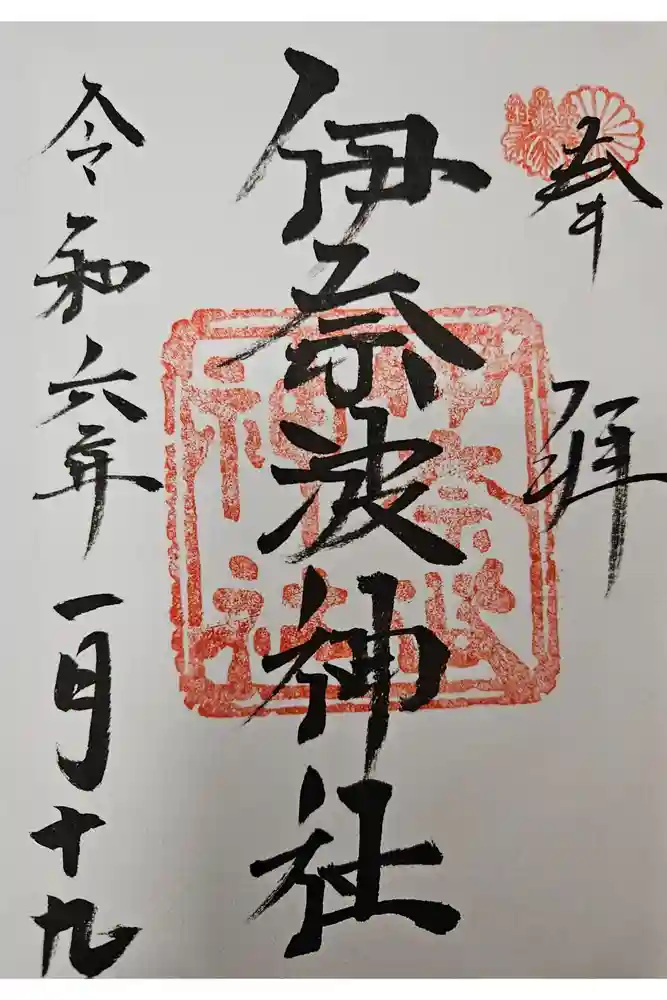 奉拝
伊奈波神社
令和六年一月十九
伊奈波
神社